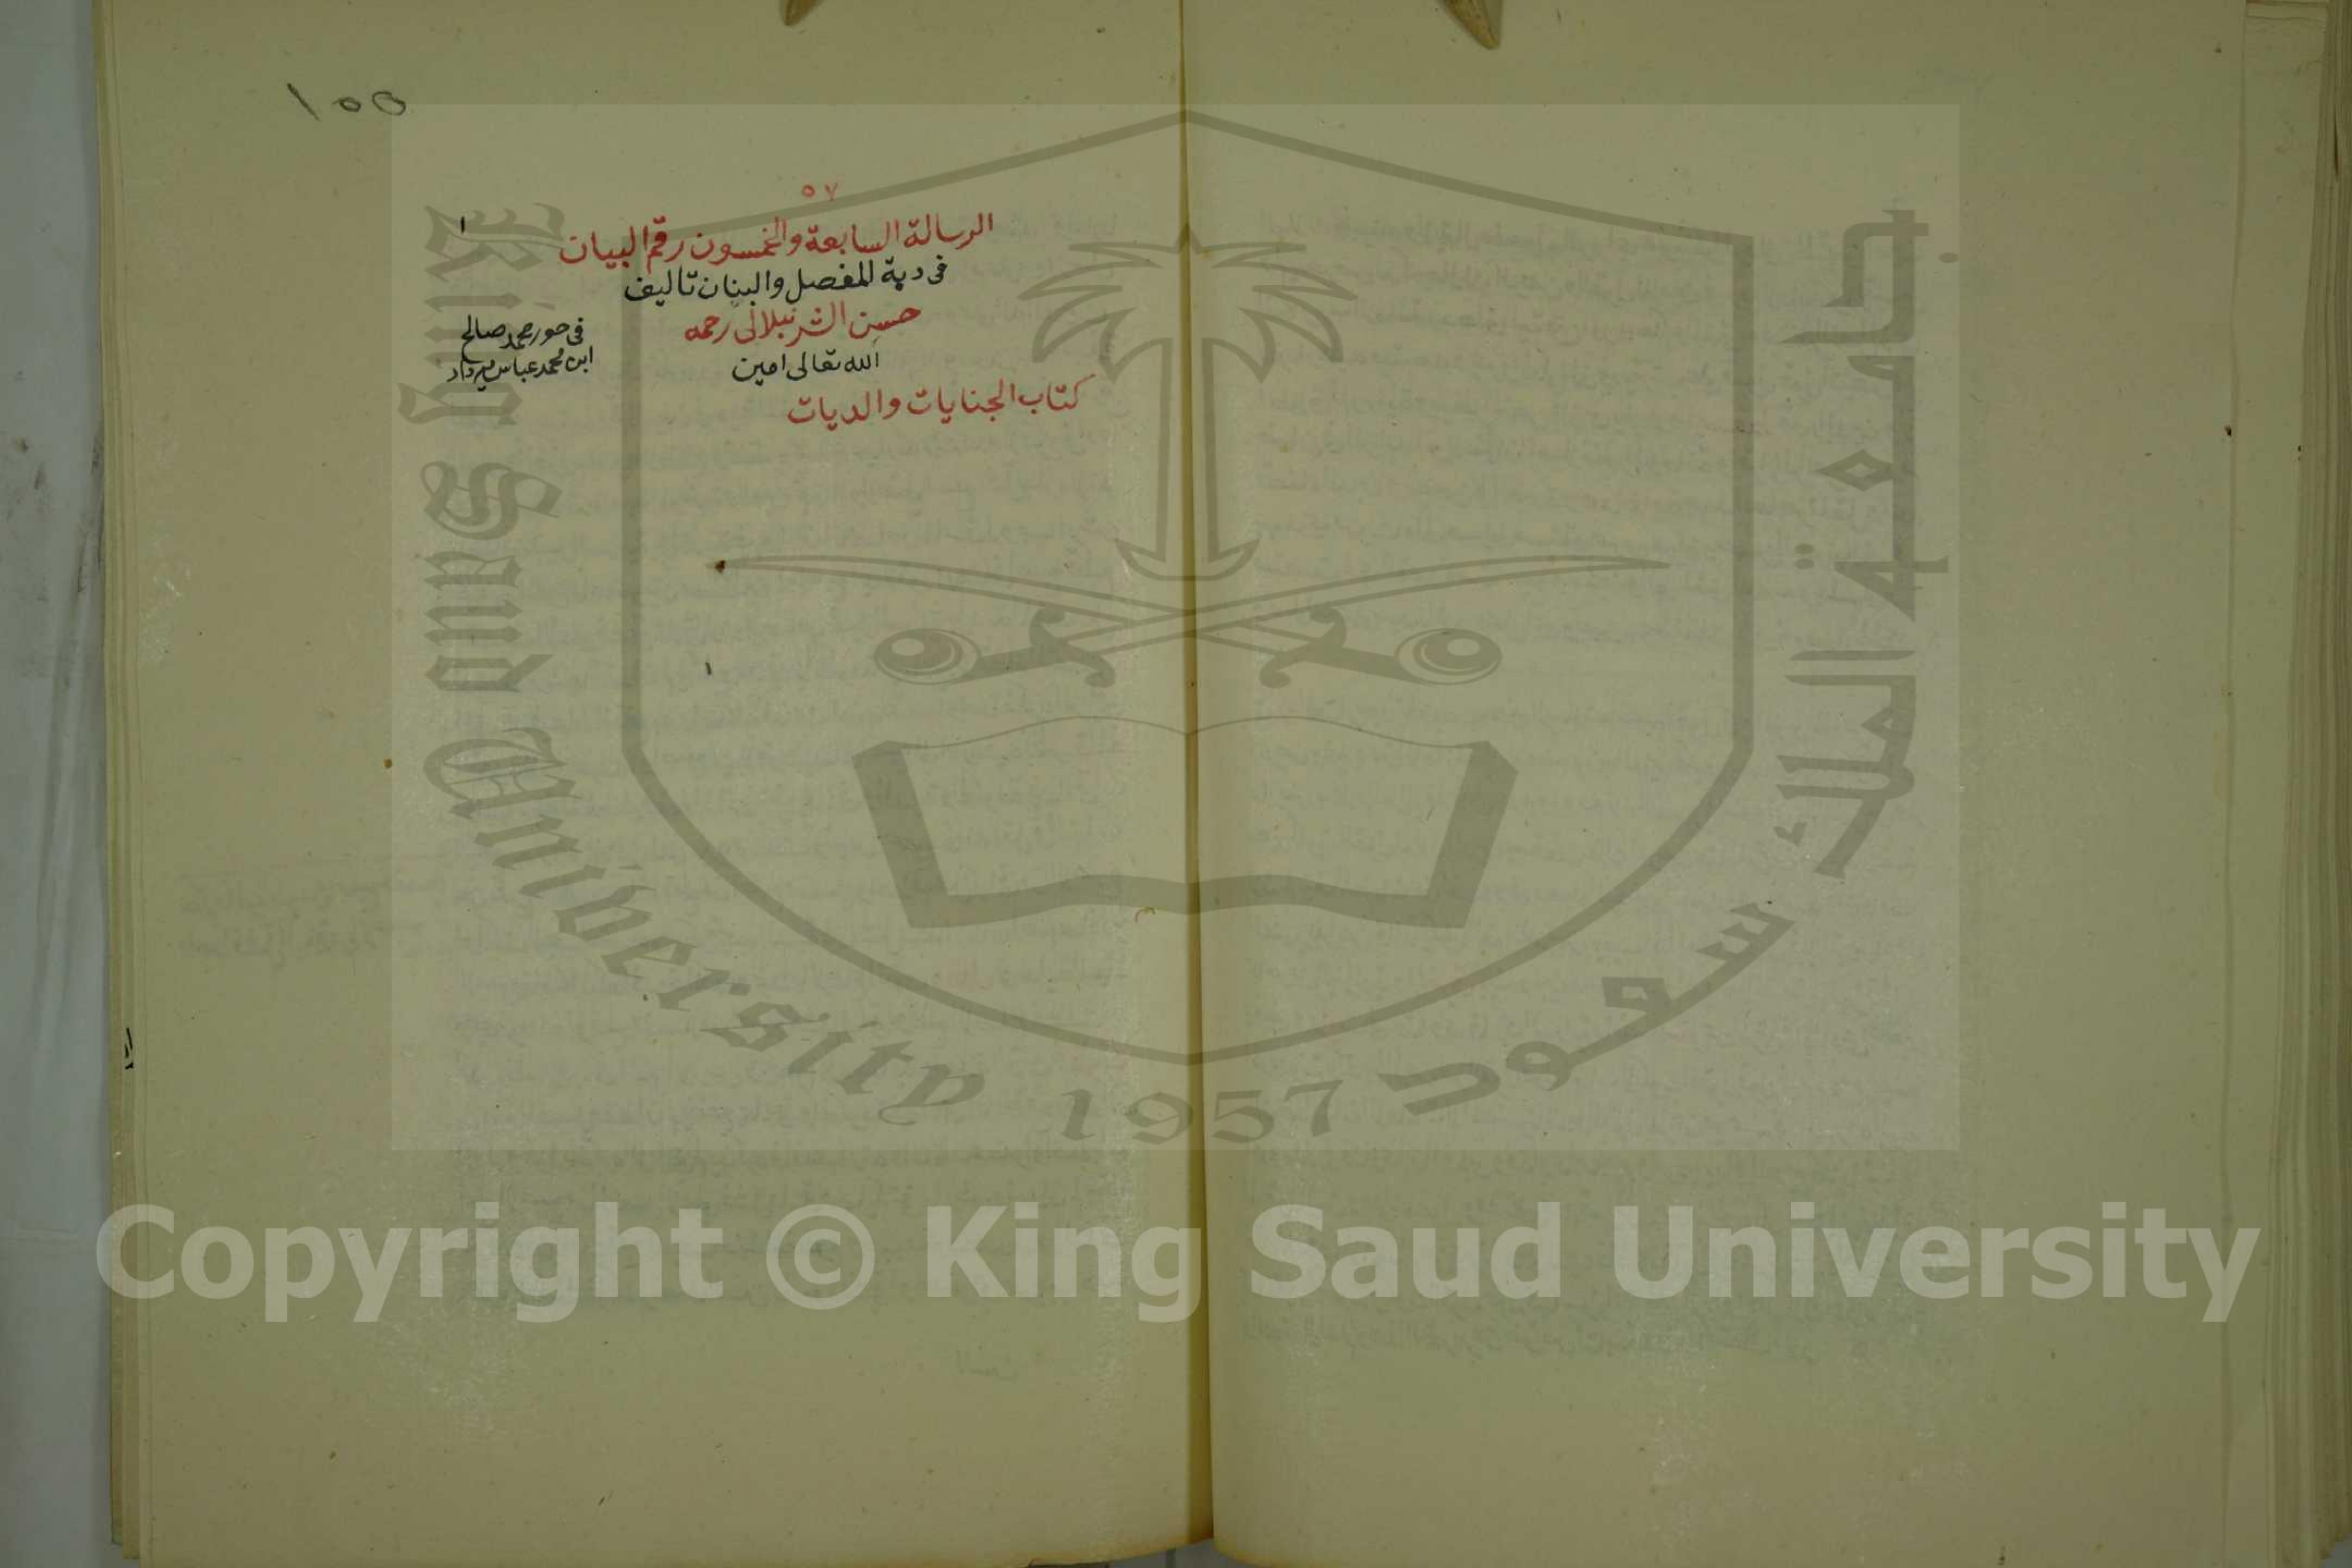 ١٥٥
٥٧
١
الرسالة السابعة والخمسون رقم البيان
فى دية المفصل والبنان تاليف
حسن الشرنبلالى رحمه
الله تعالى امين
كتاب الجنايات والديات
فى حوز محمد صالح
ابن محمد عباس ميرداد
جامعة الملك سعود
King Saud University 1957
Copyright © King Saud University